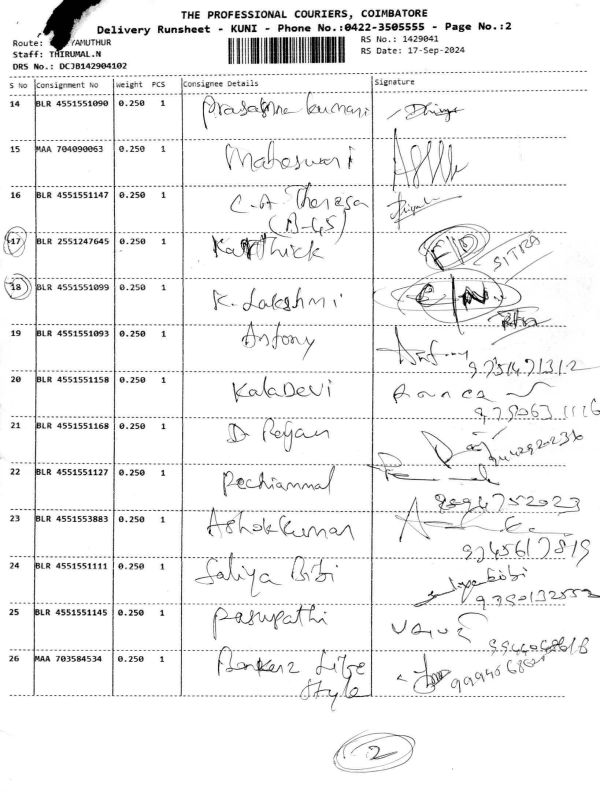 THE PROFESSIONAL COURIERS, COIMBATORE
Delivery Runsheet - KUNI - Phone No.:0422-3505555 - Page No.:2
Route: YAMUTHUR
RS No.: 1429041
Staff: THIRUMAL.N
RS Date: 17-Sep-2024
DRS No.: DCJB142904102
S No Consignment No Weight PCS Consignee Details Signature
14 BLR 4551551090 0.250 1 Prasanna kumari
15 MAA 704090063 0.250 1 Maheswari
16 BLR 4551551147 0.250 1 C.A Theresa
(B-45)
17 BLR 2551247645 0.250 1 Karthick
SITRA
18 BLR 4551551099 0.250 1 K. Lakshmi
19 BLR 4551551093 0.250 1 Antony Antony
9751471312
20 BLR 4551551158 0.250 1 KalaDevi
21 BLR 4551551168 0.250 1 D
22 BLR 4551551127 0.250 1 Pechiammal
8094752023
23 BLR 4551553883 0.250 1 AshokKumar
9745617819
24 BLR 4551551111 0.250 1 Saliya Bibi
25 BLR 4551551145 0.250 1 Pasupathi
26 MAA 703584534 0.250 1 Life
Style
2